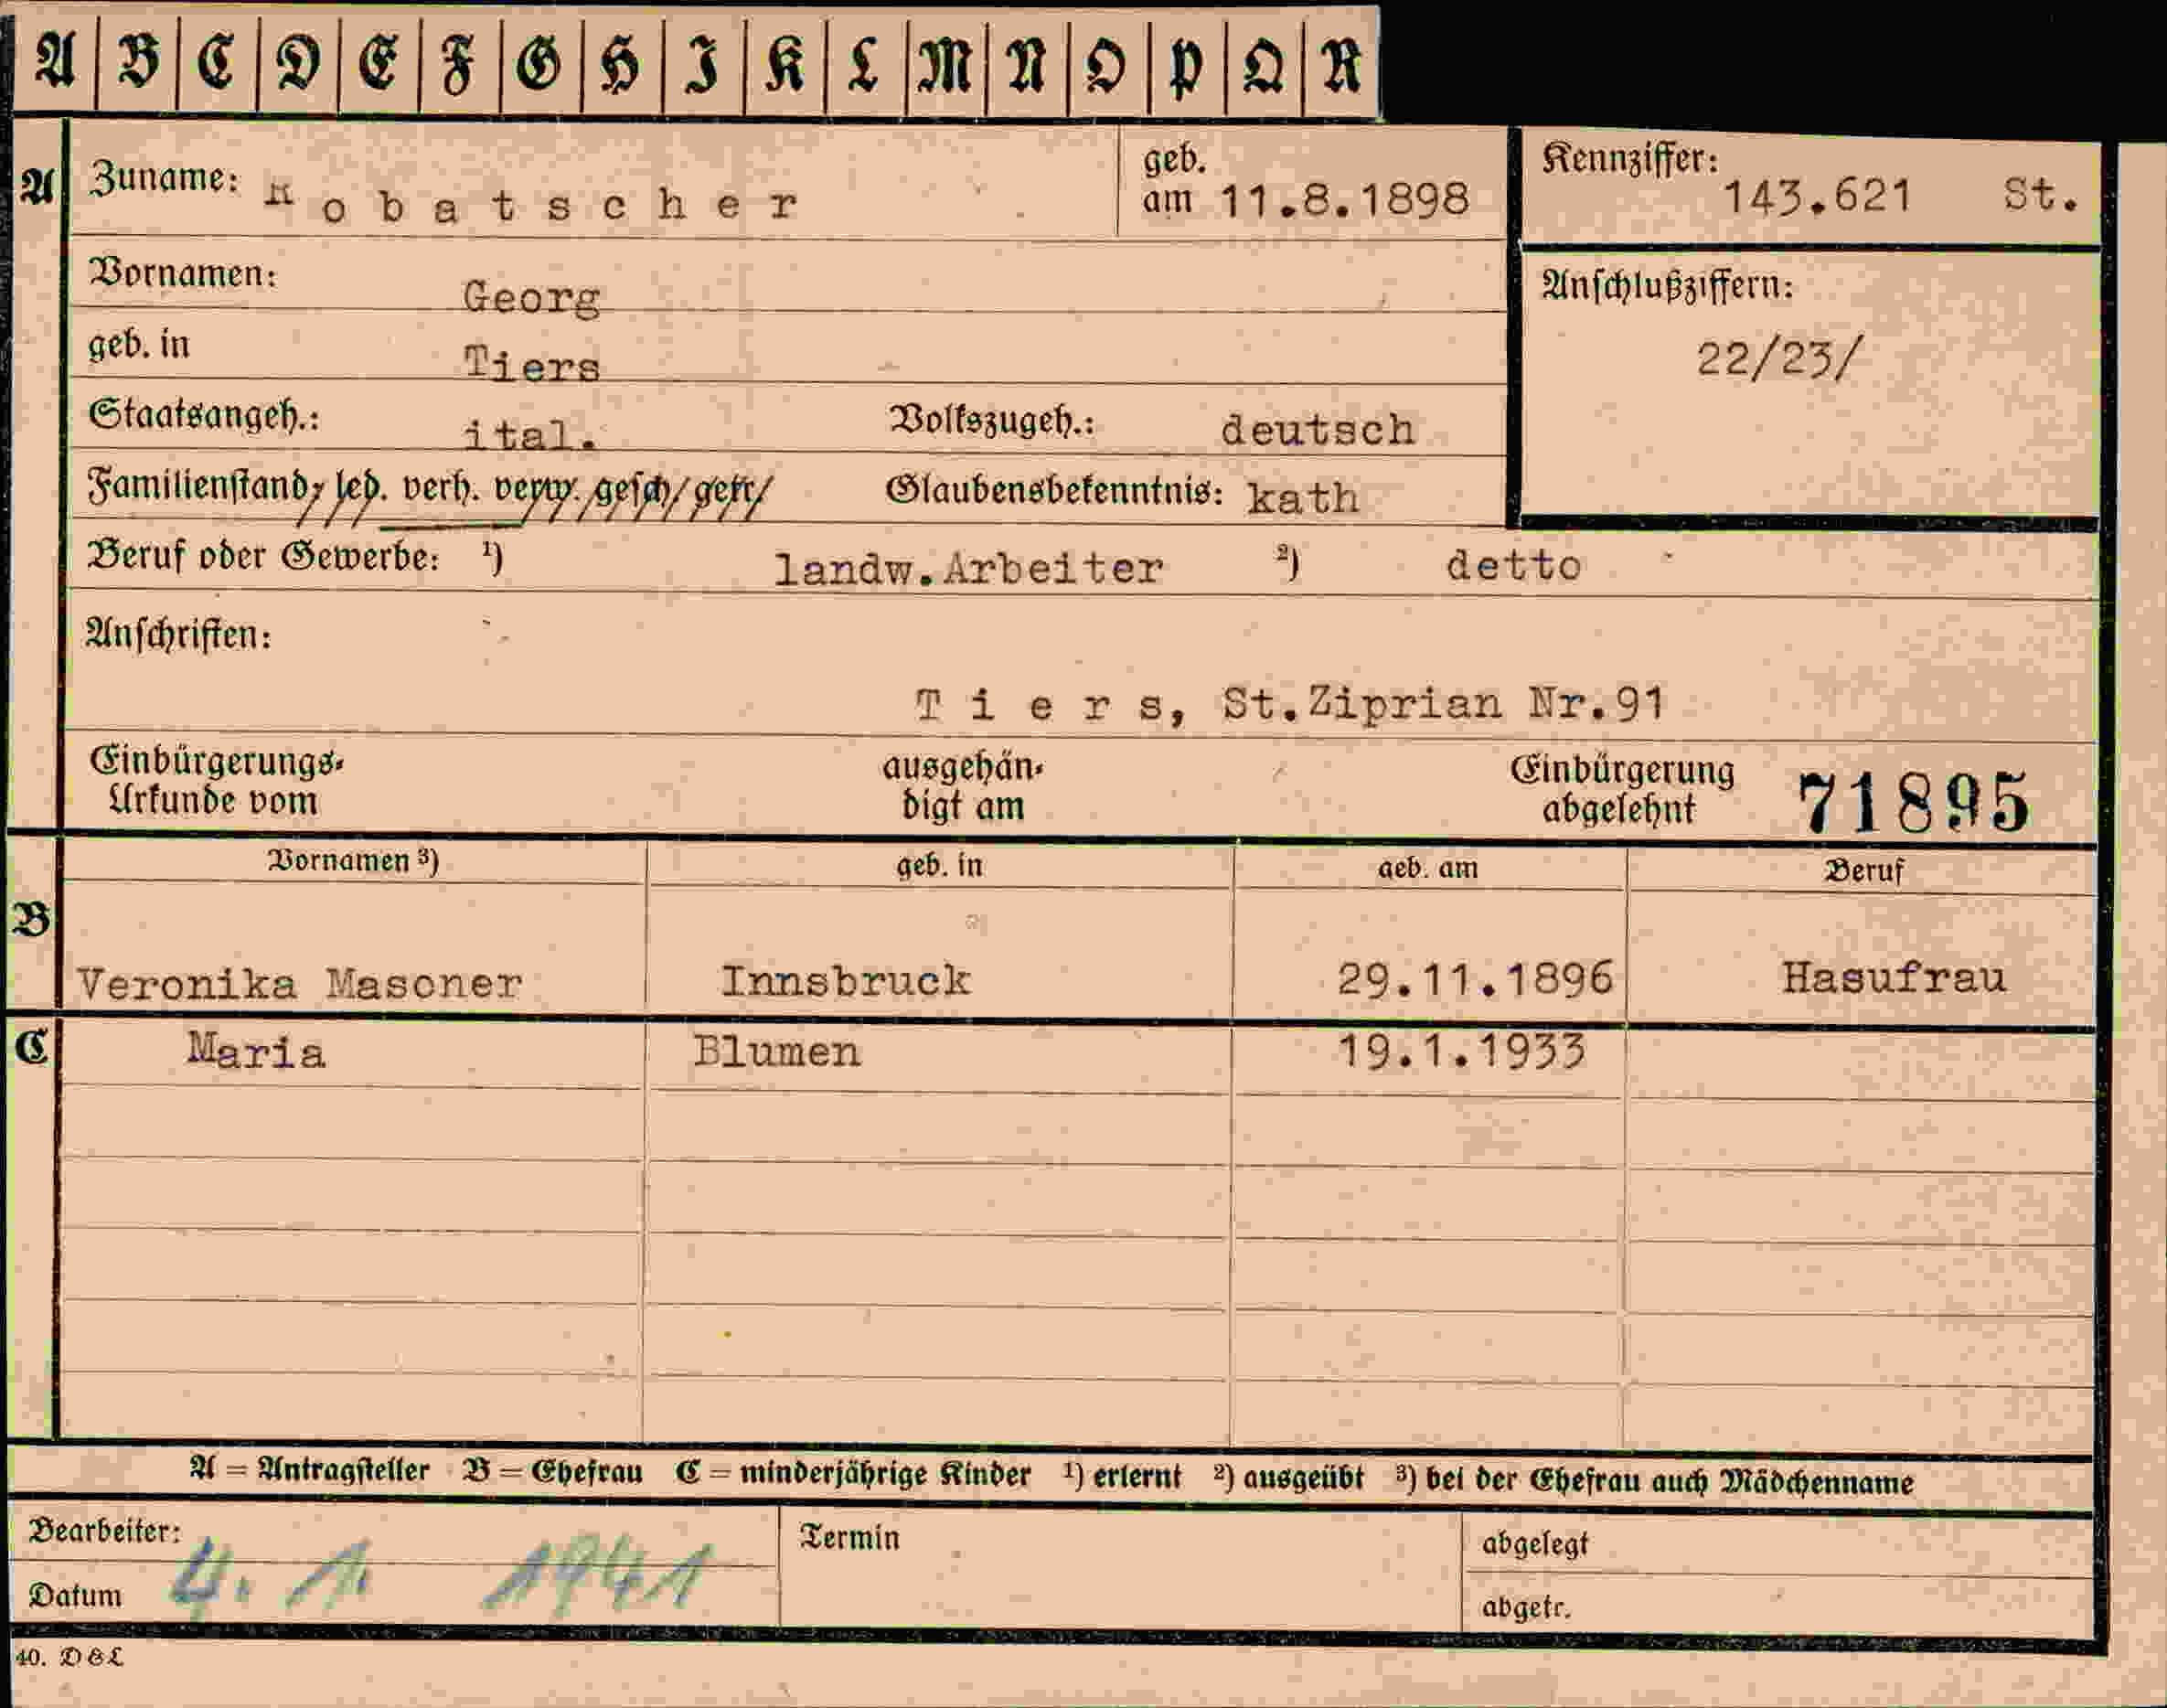 A B C D E F G H I K L M N O P Q R
A Zuname: Robatscher geb. am 11.8.1898 Kennziffer: 143.621 St.
Vornamen: Georg Anschlußziffern:
geb. in Tiers 22/23/
Staatsangeh.: ital. Volkszugeh.: deutsch
Familienstand, led. verh. verw. gesch/ getr/ Glaubensbekenntnis: kath
Beruf oder Gewerbe: ¹) landw.Arbeiter ²) detto
Anschriften:
Tiers, St.Ziprian Nr.91
Einbürgerungs- ausgehän- Einbürgerung 71895
Urkunde vom digt am abgelehnt
Vornamen ³) geb. in geb. am Beruf
B
Veronika Masoner Innsbruck 29.11.1896 Hasufrau
C Maria Blumen 19.1.1933
A = Antragsteller B = Ehefrau C = minderjährige Kinder ¹) erlernt ²) ausgeübt ³) bei der Ehefrau auch Mädchenname
Bearbeiter: Termin abgelegt
Datum 4. 1. 1941 abgetr.
40. D&L